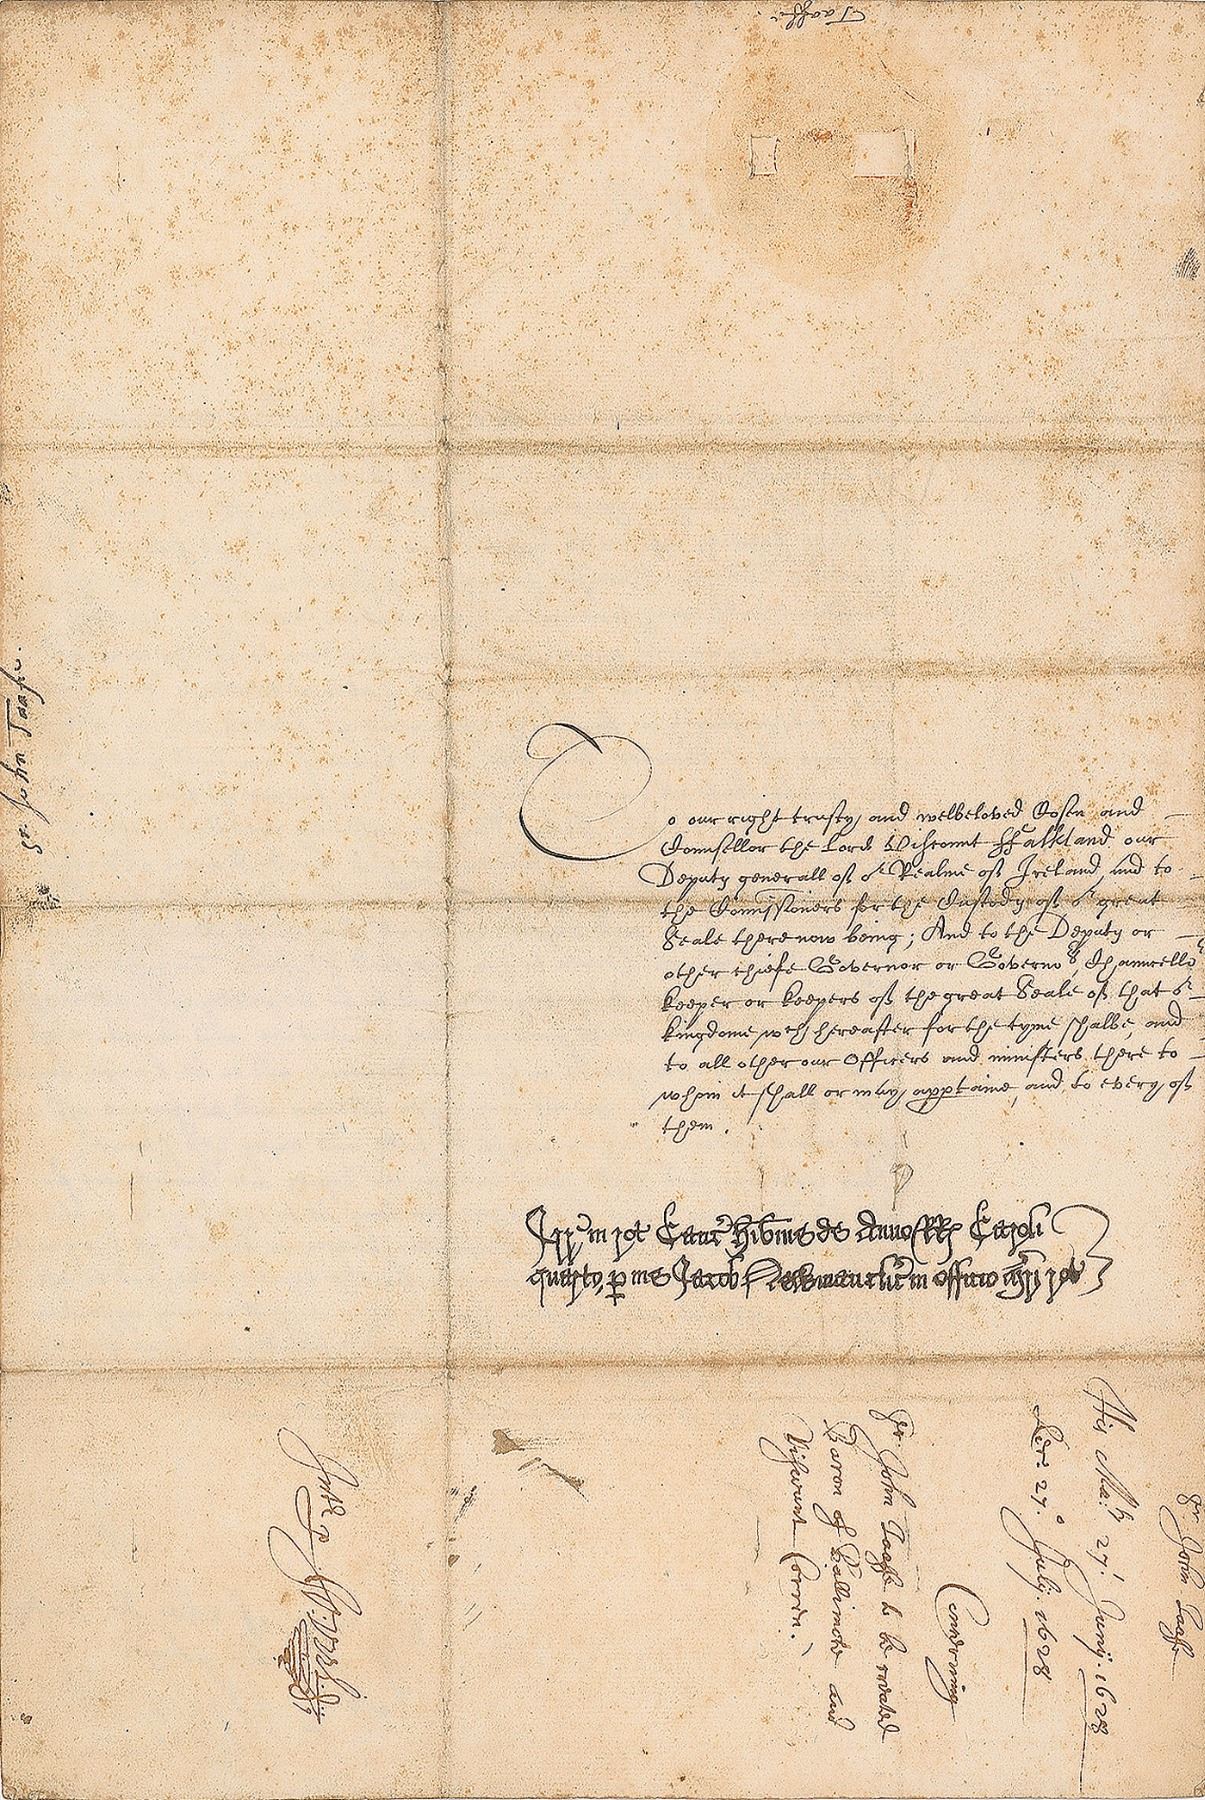 Taaffe.
Sr. John Taafe.
To our right trusty and welbeloved Cosen and
Counsellor the Lord Viscount Ffalkland our
Deputy generall of or Realme of Ireland, and to
the Comissioners for the Custody of or great
Seale there now being; And to the Deputy or
other chiefe Governor or Governors, Chauncello
keeper or keepers of the great Seale of that or
kingdome wch hereafter for the tyme shalbe, and
to all other our Officers and ministers there to
whom it shall or may apptaine, and to every of
them.
in rot Canc Hibnie de Anno RRs Caroli
quarto, p me Jacob Newman clic in officio mri rot
Sr. John Taaffe
His Ma:ts 27. Junij. 1628
Rec. 27.o Julij. 1628
Concerning
Sr. John Taaffe to be created
Baron of Ballimote and
Viscount Corren.